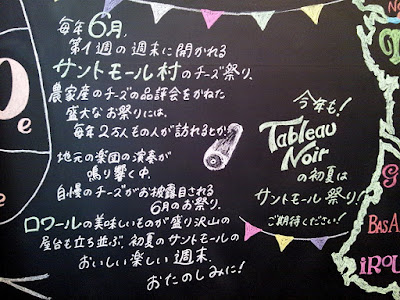 毎年6月、
第1週の週末に開かれる
サントモール村のチーズ祭り、
農家産のチーズの品評会をかねた
盛大なお祭りには、
毎年2万人もの人が訪れるとか。
地元の楽団の演奏が
鳴り響く中、
自慢のチーズがお披露目される
6月のお祭り。
ロワールの美味しいものが盛り沢山の
屋台も立ち並ぶ、初夏のサントモールの
おいしい楽しい週末、
おたのしみに!
今年も!
Tableau
Noir
の初夏は
サントモール祭り!
ご期待ください!
e
e
No
G
BAS A
IROU